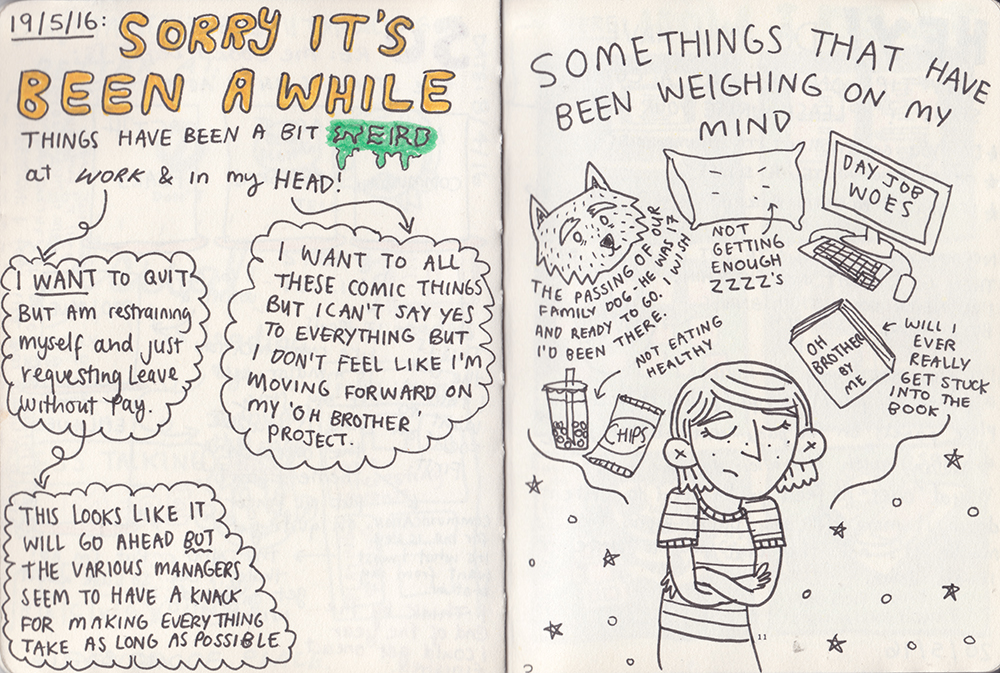 19/5/16: SORRY IT'S
BEEN A WHILE
THINGS HAVE BEEN A BIT WEIRD
at WORK & in my HEAD!
I WANT TO QUIT
BUT AM restraining
myself and just
requesting Leave
Without Pay.
I WANT TO ALL
THESE COMIC THINGS
BUT I CAN'T SAY YES
TO EVERYTHING BUT
I DON'T FEEL LIKE I'M
MOVING FORWARD ON
MY 'OH BROTHER'
PROJECT.
THIS LOOKS LIKE IT
WILL GO AHEAD BUT
THE VARIOUS MANAGERS
SEEM TO HAVE A KNACK
FOR MAKING EVERYTHING
TAKE AS LONG AS POSSIBLE
SOME THINGS THAT HAVE
BEEN WEIGHING ON MY
MIND
THE PASSING OF OUR
FAMILY DOG - HE WAS 17
AND READY TO GO. I WISH
I'D BEEN THERE.
NOT
GETTING
ENOUGH
ZZZZ'S
DAY JOB
WOES
NOT EATING
HEALTHY
CHIPS
OH
BROTHER
BY
ME
WILL I
EVER
REALLY
GET STUCK
INTO THE
BOOK
11